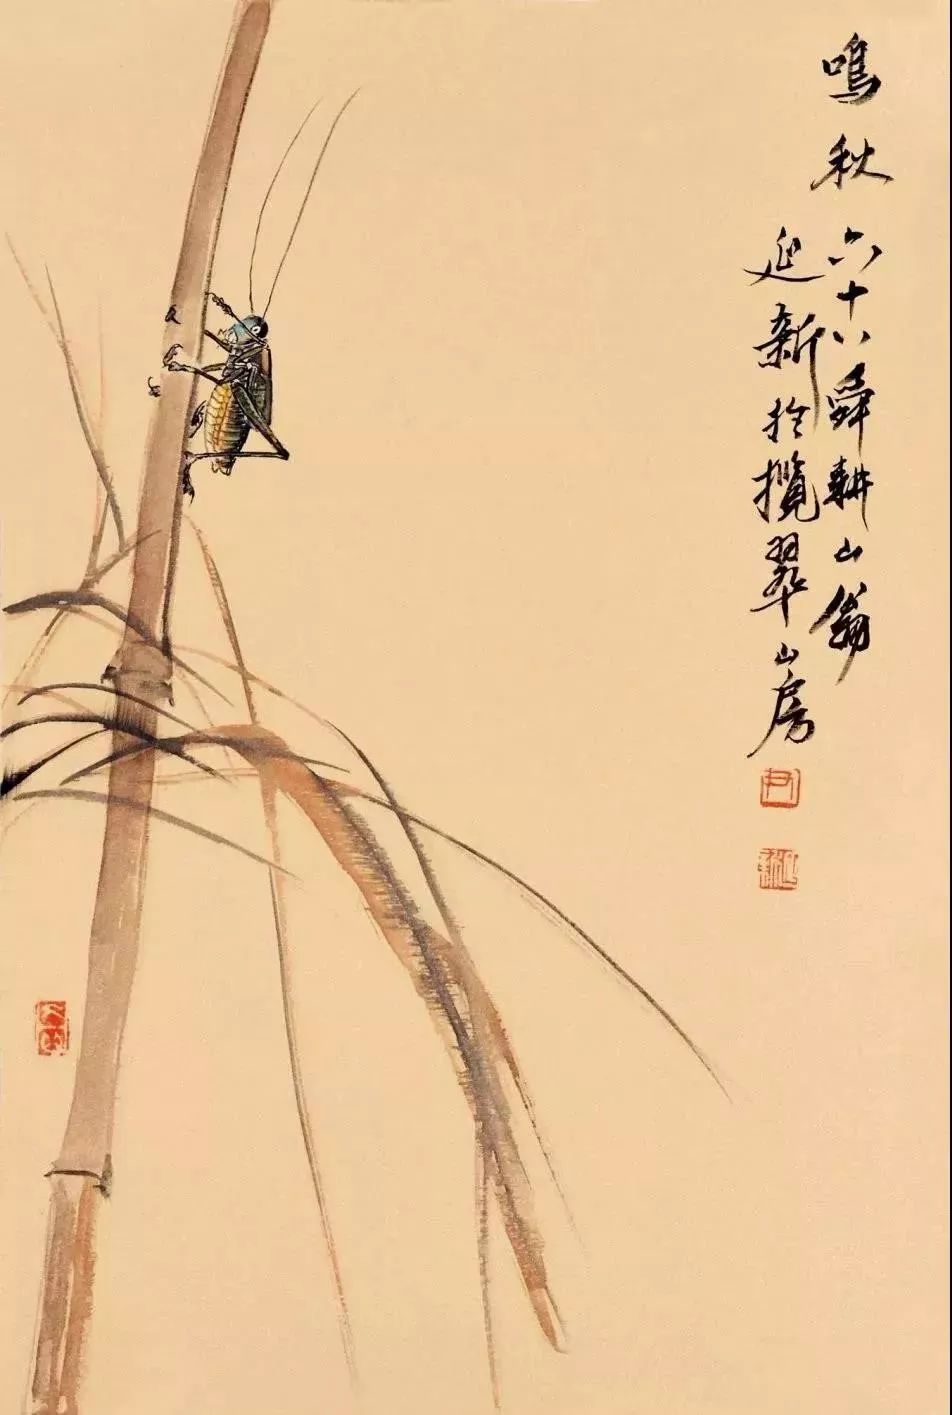 鳴秋
六十八舜耕山翁
延新於攬翠山房
尹